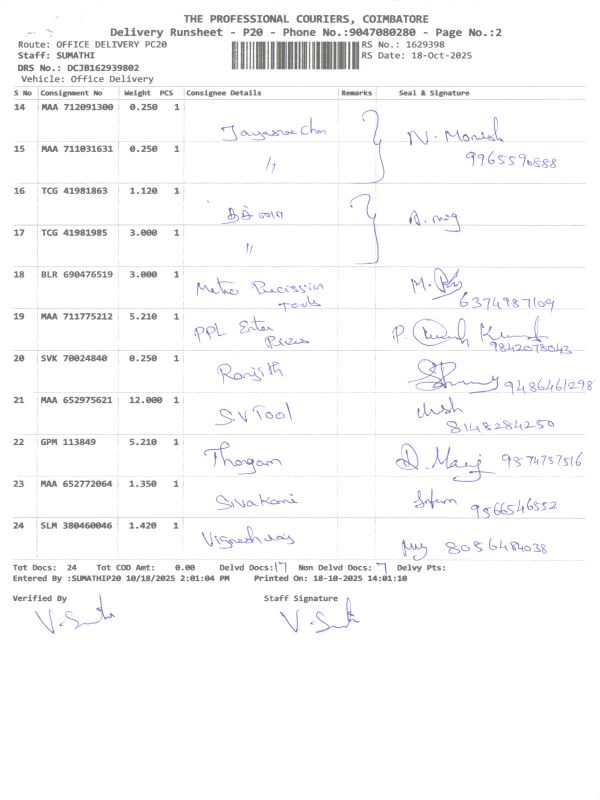 THE PROFESSIONAL COURIERS, COIMBATORE
Delivery Runsheet - P20 - Phone No.:9047080280 - Page No.:2
Route: OFFICE DELIVERY PC20 RS No.: 1629398
Staff: SUMATHI RS Date: 18-Oct-2025
DRS No.: DCJB162939802
Vehicle: Office Delivery
S No Consignment No Weight PCS Consignee Details Remarks Seal & Signature
14 MAA 712091300 0.250 1
N. Monish
9965590888
15 MAA 711031631 0.250 1 〃
16 TCG 41981863 1.120 1
17 TCG 41981985 3.000 1 〃
18 BLR 690476519 3.000 1 Metro Precission Tools M.
6374987109
19 MAA 711775212 5.210 1 PPL Enter Prizes P. Kumar
9842078043
20 SVK 70024840 0.250 1 Ranjith 9486461298
21 MAA 652975621 12.000 1 SV Tool
8148284250
22 GPM 113849 5.210 1 Thangam D. Mary 9574737516
23 MAA 652772064 1.350 1 Sivakami 9566546552
24 SLM 380460046 1.420 1 Vigneshwaj 8056484038
Tot Docs: 24 Tot COD Amt: 0.00 Delvd Docs: 17 Non Delvd Docs: 7 Delvy Pts:
Entered By :SUMATHIP20 10/18/2025 2:01:04 PM Printed On: 18-10-2025 14:01:10
Verified By Staff Signature